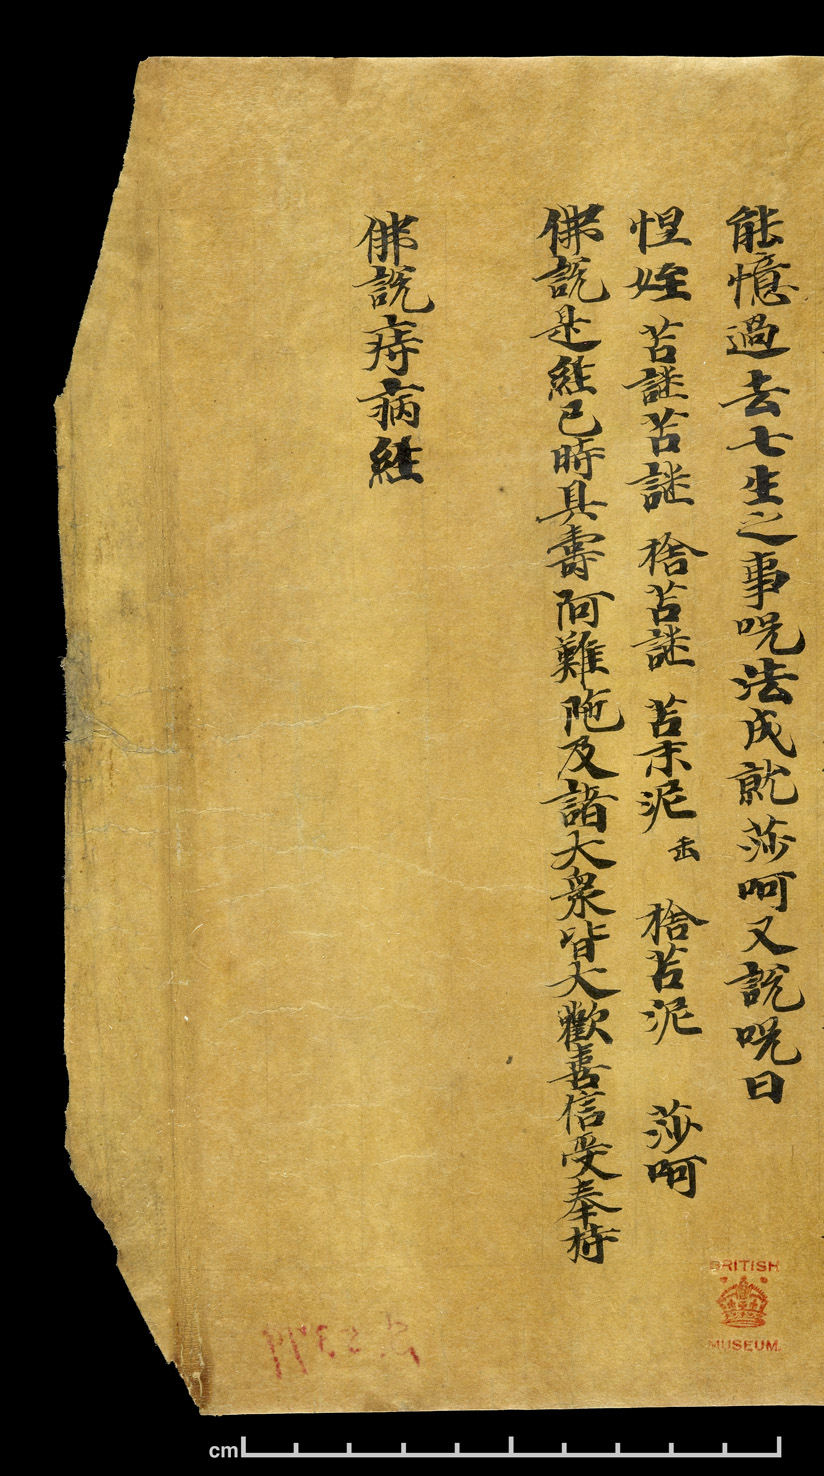 能憶過去七生之事呪法成就莎呵又說呪曰
怛姪苫謎苫謎 捨苫謎 苫末泥 去 捨苫泥 莎呵
佛說是經已時具壽阿難陁及諸大衆皆大歡喜信受奉持
佛說痔病經
BRITISH
MUSEUM
cm